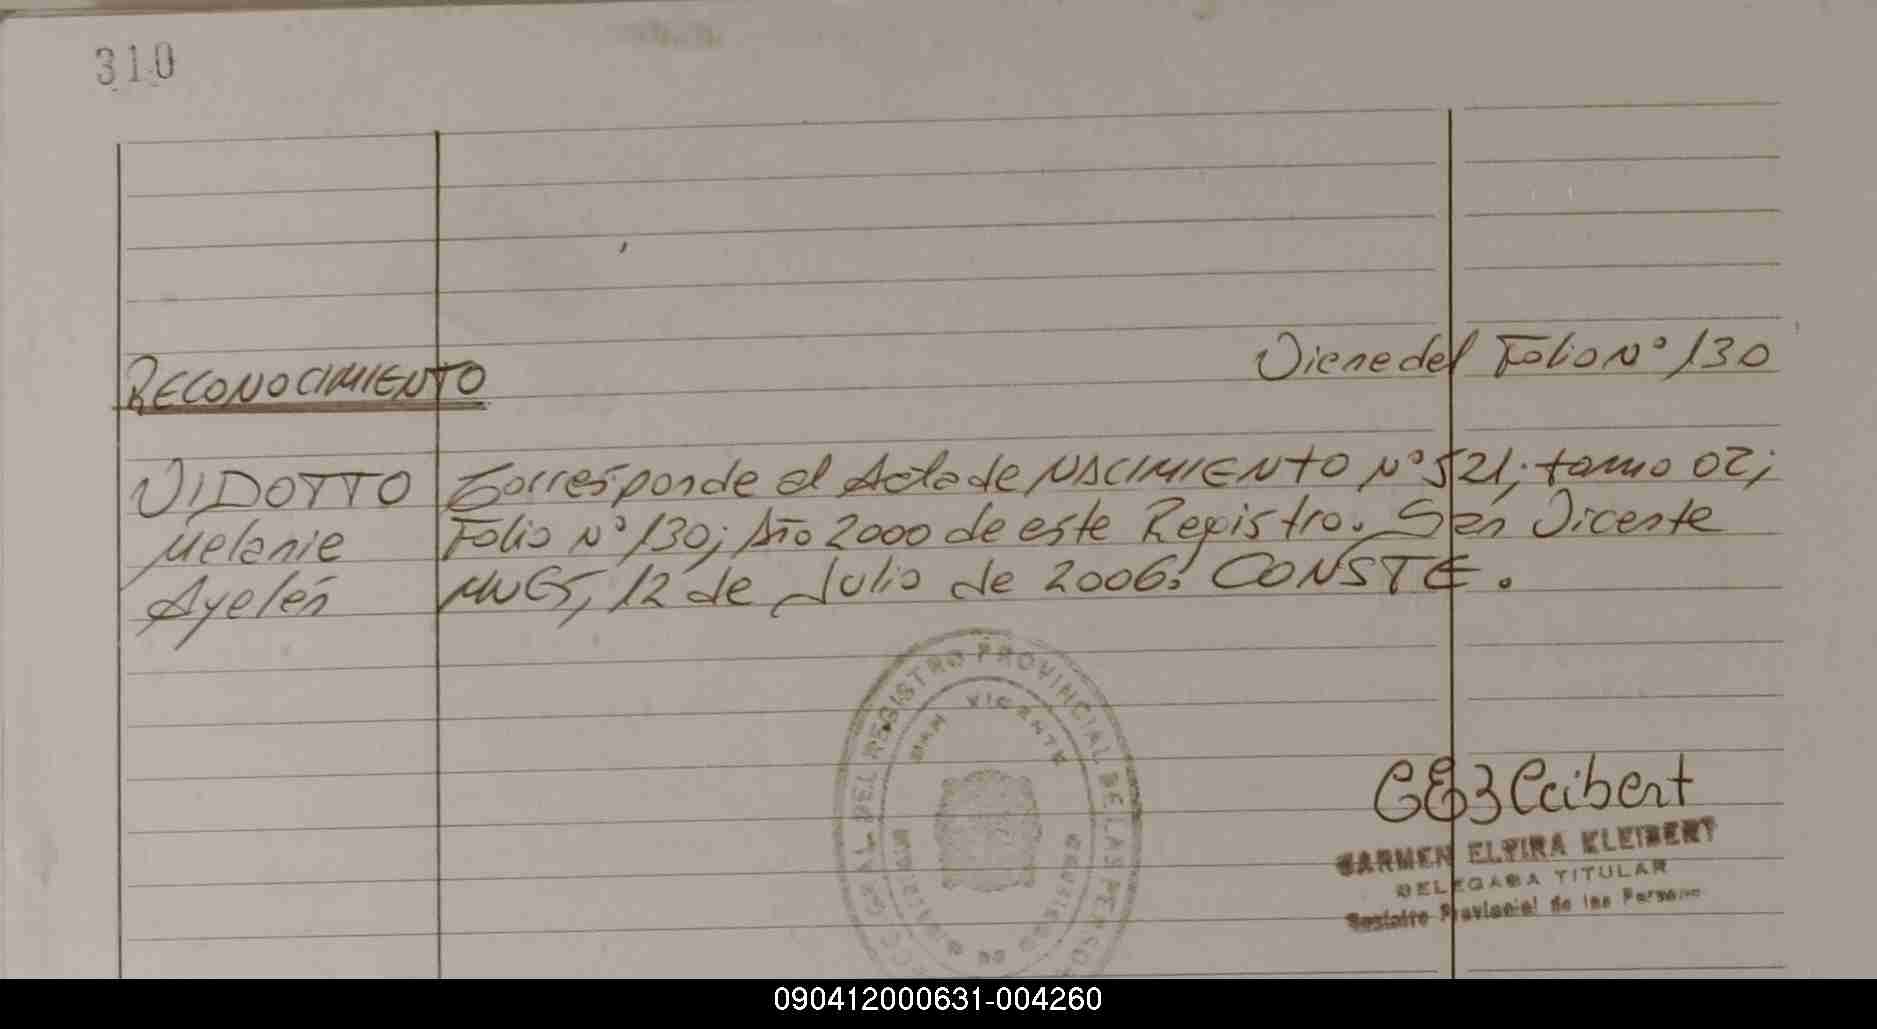 310
Viene del Folio Nº 130
RECONOCIMIENTO
VIDOTTO
Melanie
Ayelén
Corresponde al Acta de NACIMIENTO Nº 521; tomo 02;
Folio Nº 130; Año 2000 de este Registro. San Vicente
MNES, 12 de Julio de 2006. CONSTE.
GRAL DEL REGISTRO PROVINCIAL DE LAS PERSO
SAN VICENTE
CEB Cleibert
CARMEN ELVIRA KLEIBERT
DELEGADA TITULAR
Registro Provincial de las Persona
090412000631-004260